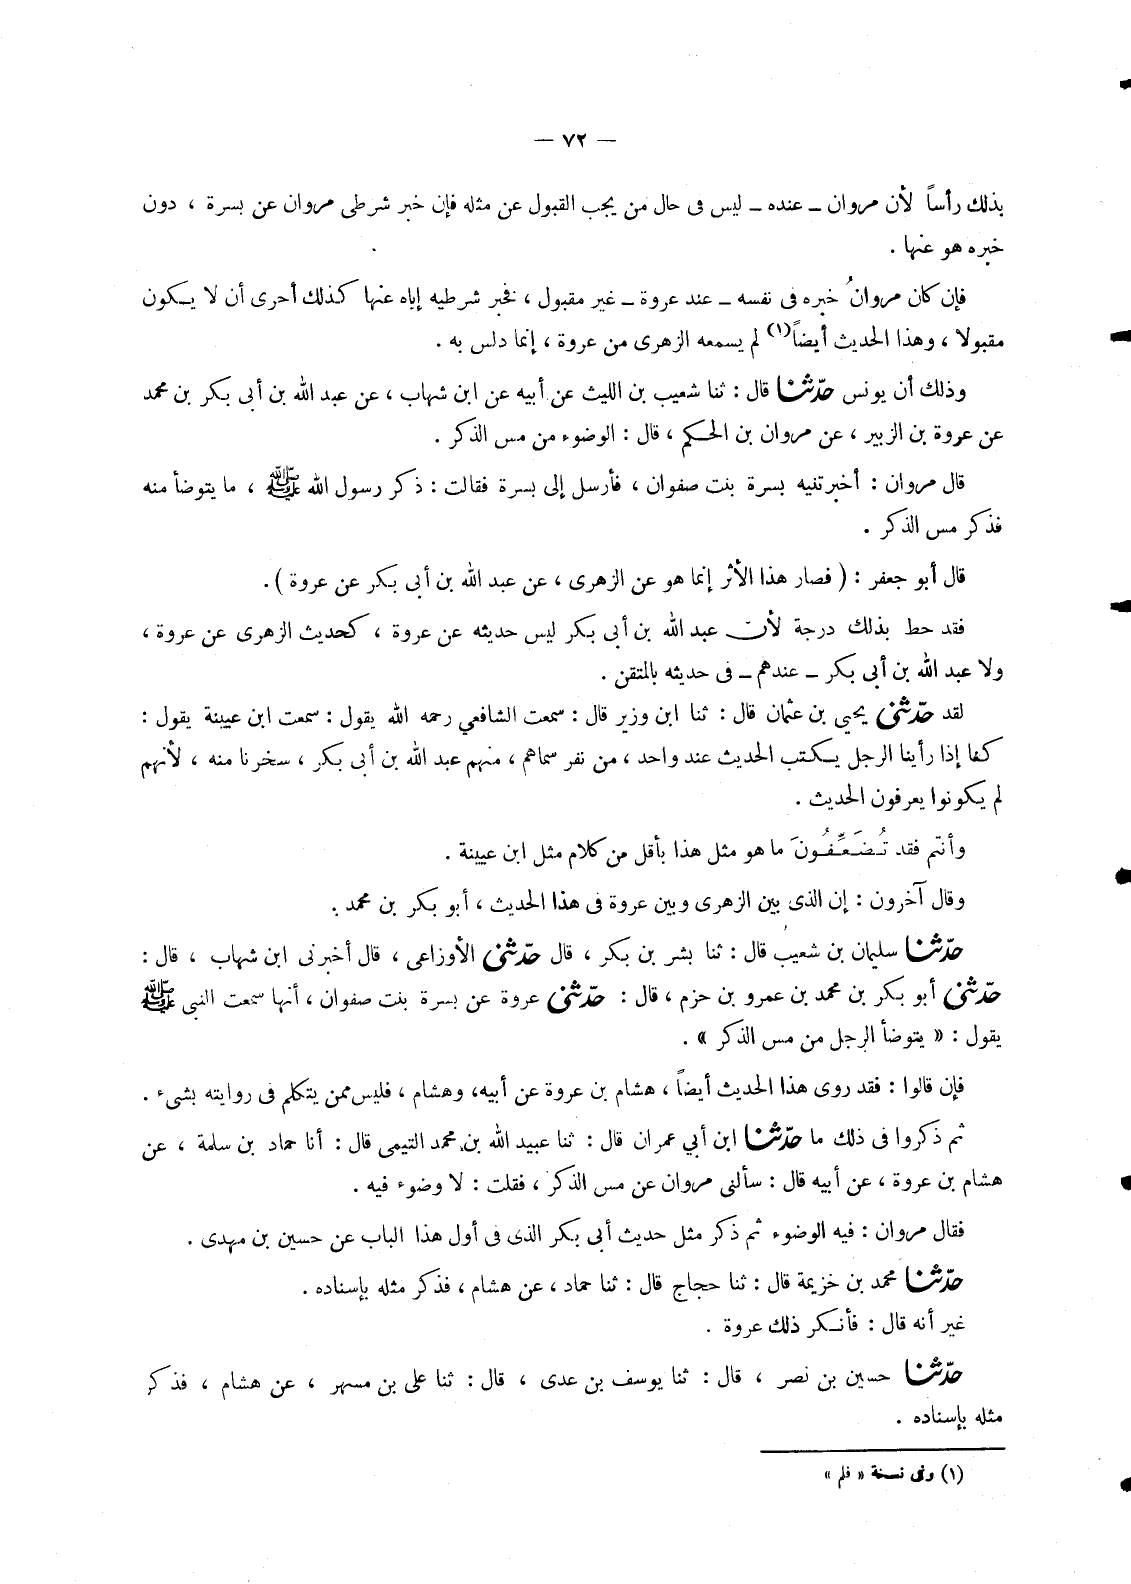 — ٧٢ —
بذلك رأساً لأن مروان ــ عنده ــ ليس فى حال من يجب القبول عن مثله فإن خبر شرطى مروان عن بسرة ، دون
خبره هو عنها .
فإن كان مروانُ خبره فى نفسه ــ عند عروة ــ غير مقبول ، فخبر شرطيه إياه عنها كذلك أحرى أن لا يكون
مقبولا ، وهذا الحديث أيضاً(١) لم يسمعه الزهرى من عروة ، إنما دلس به .
وذلك أن يونس حدّثنا قال : ثنا شعيب بن الليث عن أبيه عن ابن شهاب ، عن عبد الله بن أبى بكر بن محمد
عن عروة بن الزبير ، عن مروان بن الحكم ، قال : الوضوء من مس الذكر .
قال مروان : أخبرتنيه بسرة بنت صفوان ، فأرسل إلى بسرة فقالت : ذكر رسول الله ﷺ ، ما يتوضأ منه
فذكر مس الذكر .
قال أبو جعفر : ( فصار هذا الأثر إنما هو عن الزهرى ، عن عبد الله بن أبى بكر عن عروة ) .
فقد حط بذلك درجة لأن عبد الله بن أبى بكر ليس حديثه عن عروة ، كحديث الزهرى عن عروة ،
ولا عبد الله بن أبى بكر ــ عندهم ــ فى حديثه بالمتقن .
لقد حدّثنى يحيى بن عثمان قال : ثنا ابن وزير قال : سمعت الشافعي رحمه الله يقول : سمعت ابن عيينة يقول :
كنا إذا رأينا الرجل يكتب الحديث عند واحد ، من نفر سماهم ، منهم عبد الله بن أبى بكر ، سخرنا منه ، لأنهم
لم يكونوا يعرفون الحديث .
وأنتم فقد تُضَعِّفُونَ ما هو مثل هذا بأقل من كلام مثل ابن عيينة .
وقال آخرون : إن الذى بين الزهرى وبين عروة فى هذا الحديث ، أبو بكر بن محمد .
حدّثنا سليمان بن شعيب قال : ثنا بشر بن بكر ، قال حدّثنى الأوزاعى ، قال أخبرنى ابن شهاب ، قال :
حدّثنى أبو بكر بن محمد بن عمرو بن حزم ، قال : حدّثنى عروة عن بسرة بنت صفوان ، أنها سمعت النبى ﷺ
يقول : « يتوضأ الرجل من مس الذكر » .
فإن قالوا : فقد روى هذا الحديث أيضاً ، هشام بن عروة عن أبيه، وهشام ، فليس ممن يتكلم فى روايته بشىء .
ثم ذكروا فى ذلك ما حدّثنا ابن أبي عمران قال : ثنا عبيد الله بن محمد التيمى قال : أنا حماد بن سلمة ، عن
هشام بن عروة ، عن أبيه قال : سألنى مروان عن مس الذكر ، فقلت : لا وضوء فيه .
فقال مروان : فيه الوضوء ثم ذكر مثل حديث أبى بكر الذى فى أول هذا الباب عن حسين بن مهدى .
حدّثنا محمد بن خزيمة قال : ثنا حجاج قال : ثنا حماد ، عن هشام ، فذكر مثله بإسناده .
غير أنه قال : فأنكر ذلك عروة .
حدّثنا حسين بن نصر ، قال : ثنا يوسف بن عدى ، قال : ثنا على بن مسهر ، عن هشام ، فذكر
مثله بإسناده .
(١) وفى نسخة « فلم »